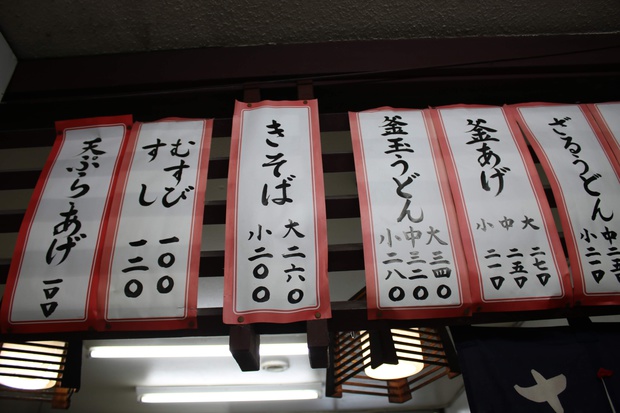 ざるうどん
中
小
釜あげ
大二七〇
中二五〇
小二一〇
釜玉うどん
大三四〇
中三二〇
小二八〇
きそば
大二六〇
小二〇〇
むすび 一〇〇
すし 一三〇
天ぷらあげ
一〇〇